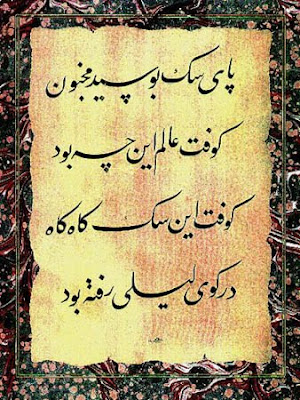 پای سک بوسید مجنون
کوفت عالم این چه بود
کوفت این سک کاه کاه
در کوی لیلی رفته بود